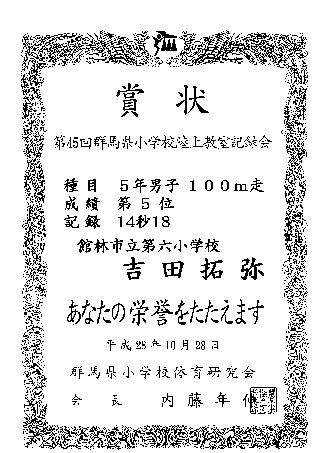 賞状
第45回群馬県小学校陸上教室記録会
種目 5年男子100m走
成績 第5位
記録 14秒18
館林市立第六小学校
吉田拓弥
あなたの栄誉をたたえます
平成28年10月28日
群馬県小学校体育研究会
会長 内藤年伸